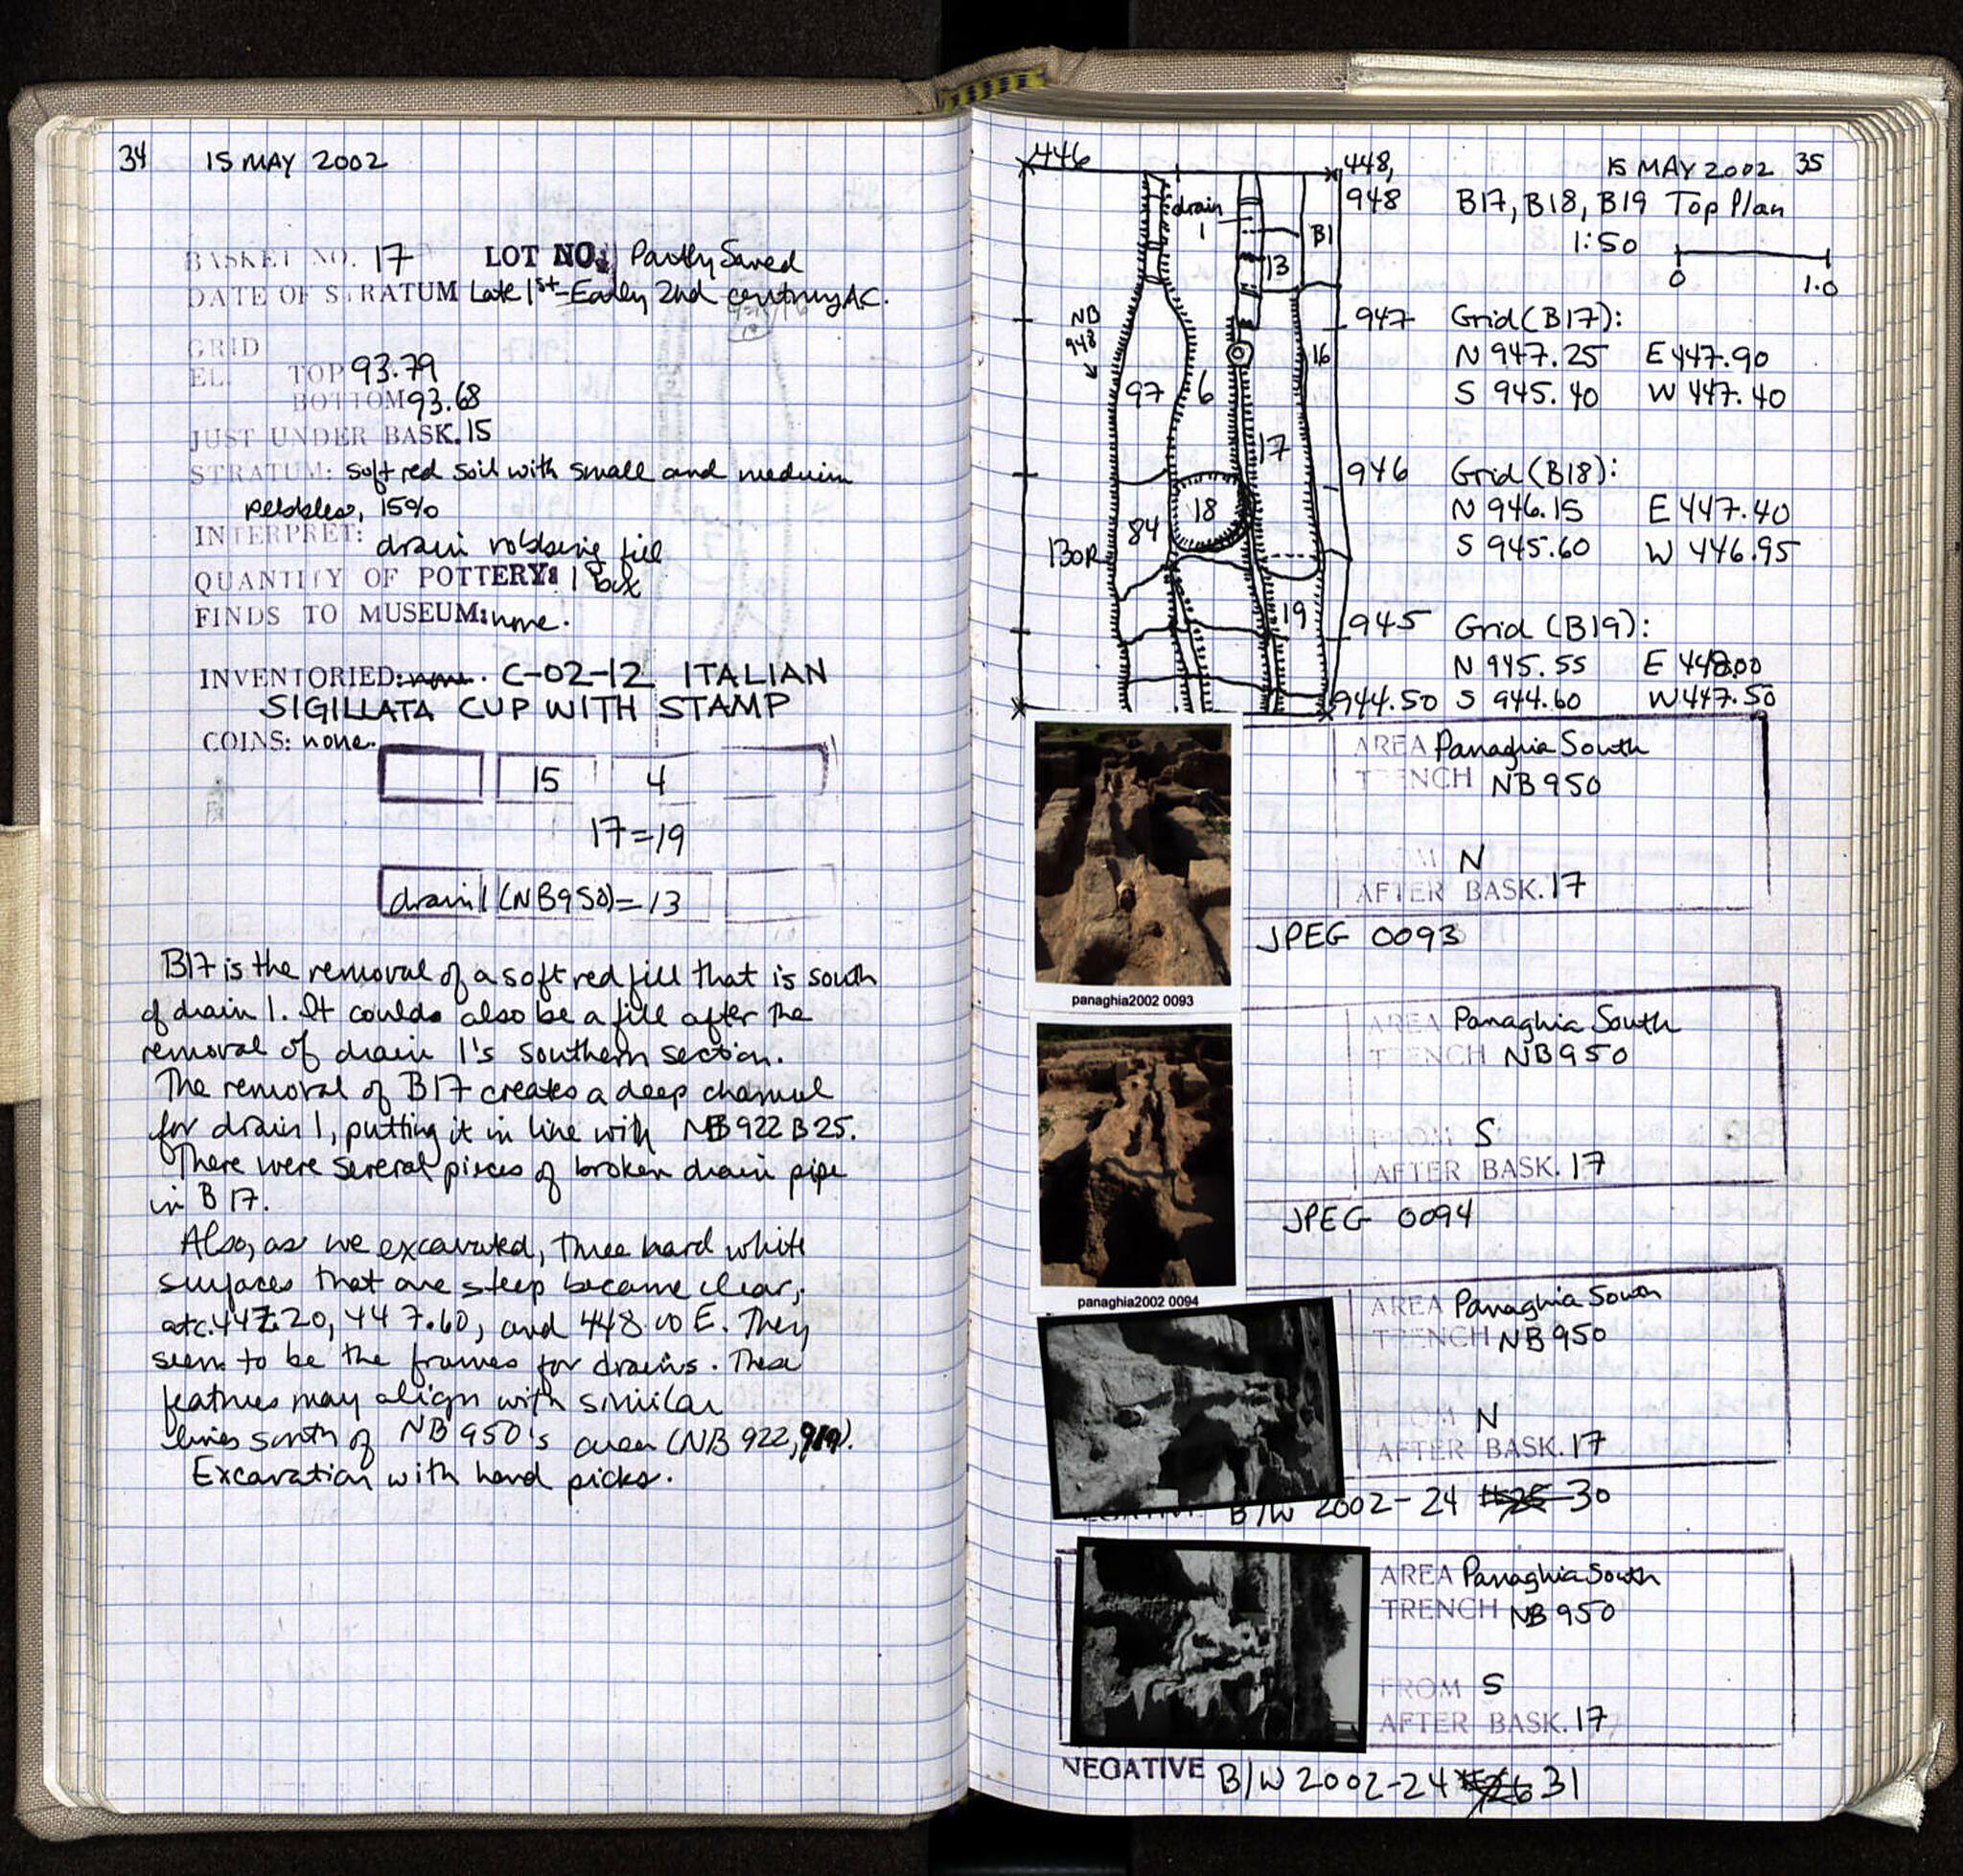 34 15 MAY 2002
BASKET NO. 17 LOT NO. Partly Saved
DATE OF STRATUM Late 1st-Early 2nd century A.C.
GRID
EL. TOP 93.79
BOTTOM 93.68
JUST UNDER BASK. 15
STRATUM: soft red soil with small and meduim
pebbles, 15%
INTERPRET: drain robbing fill
QUANTITY OF POTTERY: 1 box
FINDS TO MUSEUM: none.
INVENTORIED: none. C-02-12 ITALIAN
SIGILLATA CUP WITH STAMP
COINS: none.
15 4
17=19
drain 1 (NB950)=13
B17 is the removal of a soft red fill that is south
of drain 1. It could also be a fill after the
removal of drain 1's southern section.
The removal of B17 creates a deep channel
for drain 1, putting it in line with NB922 B25.
There were several pieces of broken drain pipe
in B17.
Also, as we excavated, three hard white
surfaces that are steep became clear,
at c. 447.20, 447.60, and 448.00 E. They
seem to be the frames for drains. These
features may align with similar
lines south of NB950's area (NB 922, 919).
Excavation with hand picks.
15 MAY 2002 35
446
448,
948
B17, B18, B19 Top Plan
1:50
0 1.0
drain
1
B1
13
NB
948
947
16
97
6
17
946
18
84
BOR
19
945
944.50
Grid (B17):
N 947.25 E 447.90
S 945.40 W 447.40
Grid (B18):
N 946.15 E 447.40
S 945.60 W 446.95
Grid (B19):
N 945.55 E 448.00
S 944.60 W 447.50
AREA Panaghia South
TRENCH NB950
FROM N
AFTER BASK. 17
JPEG 0093
panaghia2002 0093
AREA Panaghia South
TRENCH NB950
FROM S
AFTER BASK. 17
JPEG 0094
panaghia2002 0094
AREA Panaghia South
TRENCH NB950
FROM N
AFTER BASK. 17
B/W 2002-24 30
AREA Panaghia South
TRENCH NB950
FROM S
AFTER BASK. 17
NEGATIVE B/W 2002-24 31